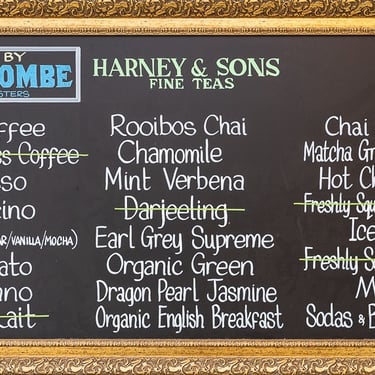 BY
OMBE
STERS
HARNEY & SONS
FINE TEAS
ffee
ss Coffee
so
cino
AR/VANILLA/MOCHA)
ato
ano
Lait
Rooibos Chai
Chamomile
Mint Verbena
Darjeeling
Earl Grey Supreme
Organic Green
Dragon Pearl Jasmine
Organic English Breakfast
Chai
Matcha Gr
Hot Ch
Freshly Squ
Ice
Freshly S
M
Sodas & B